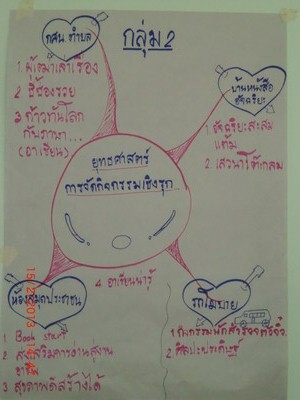 กลุ่ม 2
กศน. ตำบล
1. ผู้เฒ่าเล่าเรื่อง
2. ชี้ช่องรวย
3. ก้าวทันโลก
กับภาษา...
(อาเซียน)
บ้านหนังสือ
อัจฉริยะ
1. อัจฉริยะสะสม
แต้ม
2. เสวนาโต๊ะกลม
ยุทธศาสตร์
การจัดกิจกรรมเชิงรุก
ห้องสมุดประชาชน
1 Book start
2 ส่งเสริมการอ่านสู่งาน
อาชีพ
3 สุขภาพดีสร้างได้
4 อาเซียนน่ารู้
รถโมบาย
2. ศิลปะประดิษฐ์